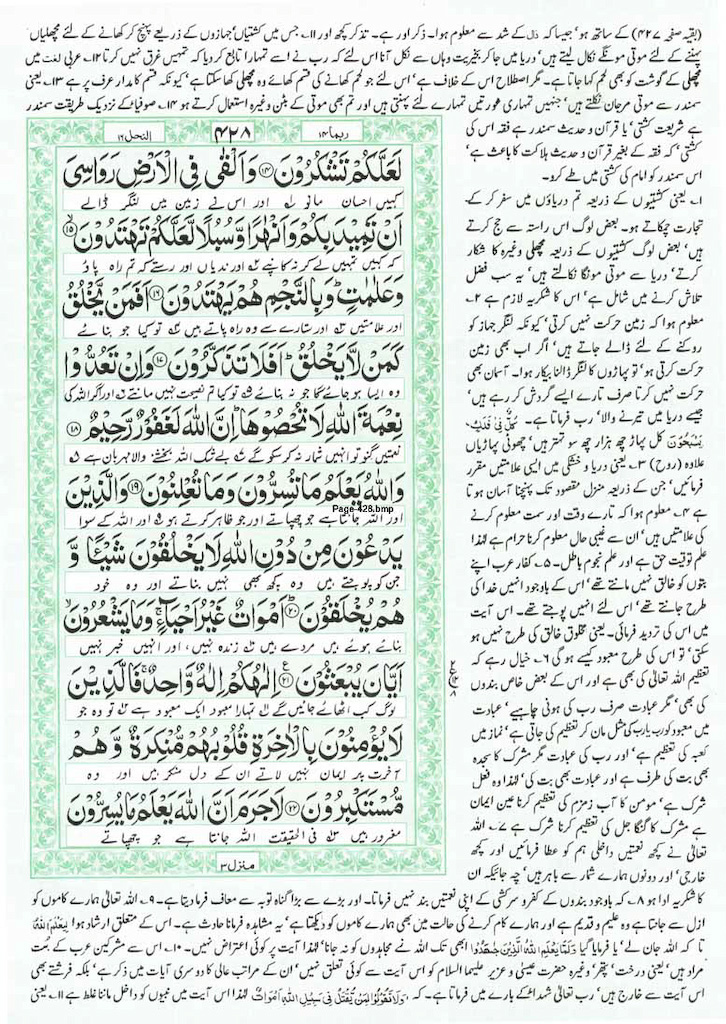 (بقیہ صفحہ ۴۲۷) کے ساتھ ہو' جیسا کہ ذال کے شد سے معلوم ہوا۔ ذکر اور ہے۔ تذکر کچھ اور ۱۱۔ جس میں کشتیاں' جہازوں کے ذریعے پہنچ کر کھانے کے لئے مچھلیاں'
پہننے کے لئے موتی مونگے نکال لیتے ہیں' دریا میں جا کر بخیریت وہاں سے نکل آنا اس لئے کہ رب نے اسے تمہارا تابع کر دیا کہ تمہیں غرق نہیں کرتا ۱۲۔ عربی لغت میں
مچھلی کے گوشت کو بھی لحم کہا جاتا ہے۔ مگر اصطلاح اس کے خلاف ہے' اس لئے جو لحم کھانے کی قسم کھائے وہ مچھلی کھا سکتا ہے' کیونکہ قسم کا مدار عرف پر ہے ۱۳۔ یعنی
سمندر سے موتی مرجان نکلتے ہیں' جنہیں تمہاری عورتیں تمہارے لئے پہنتی ہیں اور تم بھی موتی کے بٹن وغیرہ استعمال کرتے ہو ۱۴۔ صوفیا کے نزدیک طریقت سمندر
ہے شریعت کشتی' یا قرآن و حدیث سمندر ہے فقہ اس کی
کشتی' کہ فقہ کے بغیر قرآن و حدیث ہلاکت کا باعث ہے'
اس سمندر کو امام کی کشتی میں طے کرو۔
۱۔ یعنی کشتیوں کے ذریعہ تم دریاؤں میں سفر کر کے
تجارت چمکاتے ہو۔ بعض لوگ اس راستہ سے حج کرتے
ہیں' بعض لوگ کشتیوں کے ذریعہ مچھلی وغیرہ کا شکار
کرتے' دریا سے موتی مونگا نکالتے ہیں' یہ سب فضل
تلاش کرنے میں شامل ہے' اس کا شکریہ لازم ہے ۲۔
معلوم ہوا کہ زمین حرکت نہیں کرتی' کیونکہ لنگر جہاز کو
روکنے کے لئے ڈالے جاتے ہیں' اگر اب بھی زمین
حرکت کرتی ہو' تو پہاڑوں کا لنگر ڈالنا بیکار ہوا۔ آسمان بھی
حرکت نہیں کرتا صرف تارے ایسے گردش کر رہے ہیں'
جیسے دریا میں تیرنے والا' رب فرماتا ہے۔ كُلٌّ فِي فَلَكٍ
يَسْبَحُونَ کل پہاڑ چھ ہزار چھ سو تہتر ہیں' چھوٹی پہاڑیاں
علاوہ (روح) ۳۔ یعنی دریا و خشکی میں ایسی علامتیں مقرر
فرمائیں' جن کے ذریعہ منزل مقصود تک پہنچنا آسان ہوتا
ہے ۴۔ معلوم ہوا کہ تارے وقت اور سمت معلوم کرنے
کی علامتیں ہیں' ان سے غیبی حال معلوم کرنا حرام ہے لہٰذا
علم توقیت حق ہے اور علم نجوم باطل۔ ۵۔ کفار عرب اپنے
بتوں کو خالق نہیں مانتے تھے' اس کے باوجود انہیں خدا کی
طرح جانتے تھے' اس لئے انہیں پوجتے تھے۔ اس آیت
میں اس کی تردید فرمائی۔ یعنی مخلوق خالق کی طرح نہیں ہو
سکتی' تو اس کی طرح معبود کیسے ہو گی ۶۔ خیال رہے کہ
تعظیم اللہ تعالیٰ کی بھی ہے اور اس کے بعض خاص بندوں
کی بھی' مگر عبادت صرف رب کی ہونی چاہیے' عبادت
میں معبود کو رب یا رب کی مثل مان کر تعظیم کی جاتی ہے' نماز میں
کعبہ کی تعظیم ہے' اور رب کی عبادت مگر مشرک کا سجدہ
بھی بت کی طرف ہے اور عبادت بھی بت کی' لہٰذا وہ فعل
شرک ہے' مومن کا آب زمزم کی تعظیم کرنا عین ایمان
ہے مشرک کا گنگا جل کی تعظیم کرنا شرک ہے ۷۔ اللہ
تعالیٰ نے کچھ نعمتیں داخلی ہم کو عطا فرمائیں اور کچھ
خارجی' اور دونوں ہمارے شمار سے باہر ہیں' چہ جائیکہ ان
النحل ۱۶
۴۲۸
ربما ۱۴
لَعَلَّكُمْ تَشْكُرُوْنَ ۝۱۴ وَاَلْقٰى فِى الْاَرْضِ رَوَاسِىَ
کہیں احسان مانو ۱؎ اور اس نے زمین میں لنگر ڈالے
اَنْ تَمِيْدَ بِكُمْ وَاَنْهٰرًا وَّسُبُلًا لَّعَلَّكُمْ تَهْتَدُوْنَ ۝۱۵
کہ کہیں تمہیں لے کر نہ کانپے ۲؎ اور ندیاں اور رستے کہ تم راہ پاؤ
وَعَلٰمٰتٍ ؕ وَبِالنَّجْمِ هُمْ يَهْتَدُوْنَ ۝۱۶ اَفَمَنْ يَّخْلُقُ
اور علامتیں ۳؎ اور ستارے سے وہ راہ پاتے ہیں ۴؎ تو کیا جو بنائے
كَمَنْ لَّا يَخْلُقُ ؕ اَفَلَا تَذَكَّرُوْنَ ۝۱۷ وَاِنْ تَعُدُّوْا
وہ ایسا ہو جائے گا جو نہ بنائے ۵؎ تو کیا تم نصیحت نہیں مانتے ۶؎ اور اگر اللہ کی
نِعْمَةَ اللّٰهِ لَا تُحْصُوْهَا ؕ اِنَّ اللّٰهَ لَغَفُوْرٌ رَّحِيْمٌ ۝۱۸
نعمتیں گنو تو انہیں شمار نہ کر سکو گے ۷؎ بے شک اللہ بخشنے والا مہربان ہے ۸؎
وَاللّٰهُ يَعْلَمُ مَا تُسِرُّوْنَ وَمَا تُعْلِنُوْنَ ۝۱۹ وَالَّذِيْنَ
Page-428.bmp
اور اللہ جانتا ہے جو چھپاتے اور جو ظاہر کرتے ہو ۹؎ اور اللہ کے سوا
يَدْعُوْنَ مِنْ دُوْنِ اللّٰهِ لَا يَخْلُقُوْنَ شَيْـًٔا وَّ
جن کو پوجتے ہیں وہ کچھ بھی نہیں بناتے اور وہ خود
هُمْ يُخْلَقُوْنَ ۝۲۰ اَمْوَاتٌ غَيْرُ اَحْيَآءٍ ۚ وَمَا يَشْعُرُوْنَ ۙ
بنائے ہوئے ہیں مردے ہیں ۱۰؎ زندہ نہیں، اور انہیں خبر نہیں
اَيَّانَ يُبْعَثُوْنَ ۝۲۱ اِلٰهُكُمْ اِلٰهٌ وَّاحِدٌ ۚ فَالَّذِيْنَ
لوگ کب اٹھائے جائیں گے ۱۱؎ تمہارا معبود ایک معبود ہے ۱۲؎ تو وہ جو
لَا يُؤْمِنُوْنَ بِالْاٰخِرَةِ قُلُوْبُهُمْ مُّنْكِرَةٌ وَّهُمْ
آخرت پر ایمان نہیں لاتے ان کے دل منکر ہیں اور وہ
مُّسْتَكْبِرُوْنَ ۝۲۲ لَا جَرَمَ اَنَّ اللّٰهَ يَعْلَمُ مَا يُسِرُّوْنَ
مغرور ہیں فی الحقیقت اللہ جانتا ہے جو چھپاتے
منزل ۳
کا شکریہ ادا ہو ۸۔ کہ باوجود بندوں کے کفر و سرکشی کے اپنی نعمتیں بند نہیں فرماتا۔ اور بڑے سے بڑا گناہ توبہ سے معاف فرما دیتا ہے۔ ۹۔ اللہ تعالیٰ ہمارے کاموں کو
ازل سے جانتا ہے وہ علیم و قدیم ہے اور ہمارے کام کرنے کی حالت میں بھی ہمارے کاموں کو دیکھتا ہے' یہ مشاہدہ فرمانا حادث ہے۔ اس کے متعلق ارشاد ہوا لِيَعْلَمَ اللّٰهُ
تا کہ اللہ جان لے' یا فرمایا گیا وَلَمَّا يَعْلَمِ اللّٰهُ الَّذِيْنَ جٰهَدُوْا ابھی تک اللہ نے مجاہدوں کو نہ جانا' لہٰذا آیت پر کوئی اعتراض نہیں۔ ۱۰۔ اس سے مشرکین عرب کے بت
مراد ہیں' یعنی درخت' پتھر' وغیرہ حضرت عیسیٰ و عزیر علیہما السلام کو اس آیت سے کوئی تعلق نہیں' ان کے مراتب عالی کا دوسری آیات میں ذکر ہے' بلکہ فرشتے بھی
اس آیت سے خارج ہیں' رب تعالیٰ شہدا کے بارے میں فرماتا ہے۔ کہ وَلَا تَقُوْلُوْا لِمَنْ يُّقْتَلُ فِيْ سَبِيْلِ اللّٰهِ اَمْوَاتٌ لہٰذا اس آیت میں نبیوں کو داخل ماننا غلط ہے ۱۱۔ یعنی